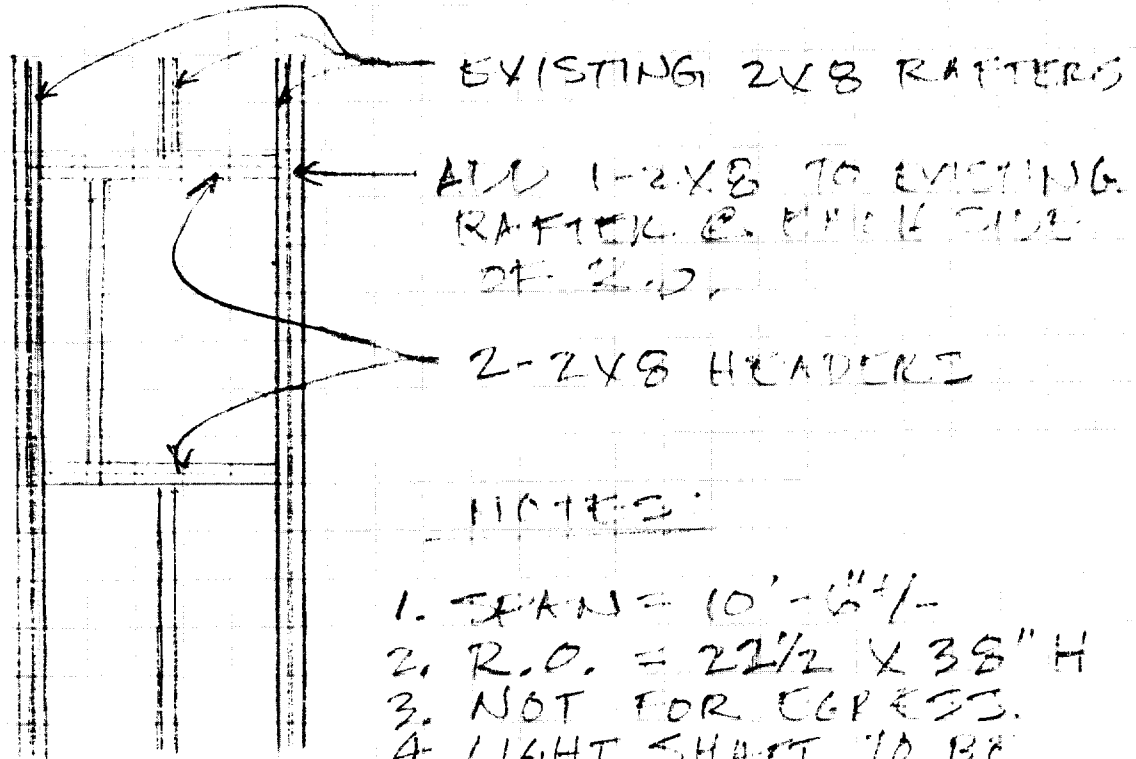 EXISTING 2X8 RAFTERS
ADD 1-2X8 TO EXISTING
RAFTER @ EACH SIDE
OF R.O.
2-2X8 HEADERS
NOTES:
1. SPAN = 10'-6"+/-
2. R.O. = 22½ X 38" H
3. NOT FOR EGRESS.
4. LIGHT SHAFT TO BE